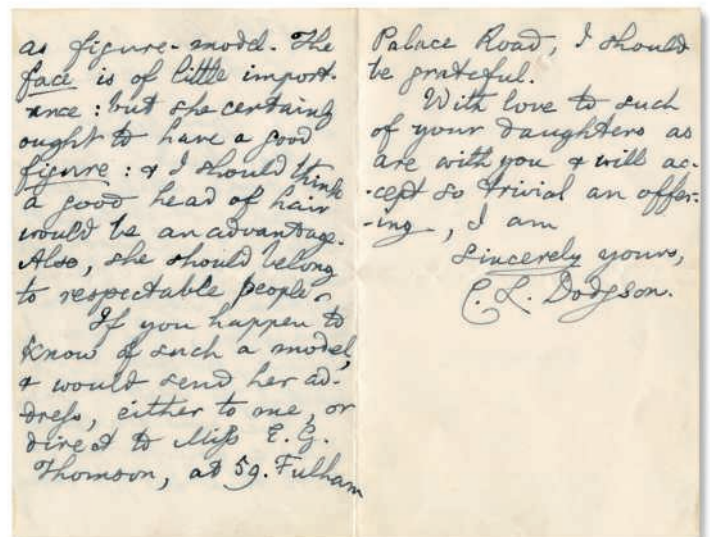 as figure-model. The
face is of little import-
ance : but she certainly
ought to have a good
figure : & I should think
a good head of hair
would be an advantage.
Also, she should belong
to respectable people.
If you happen to
know of such a model,
& would send her ad-
dress, either to me, or
direct to Miss E. G.
Thomson, at 59. Fulham
Palace Road, I should
be grateful.
With love to such
of your daughters as
are with you & will ac-
-cept so trivial an offer-
-ing, I am
Sincerely yours,
C. L. Dodgson.